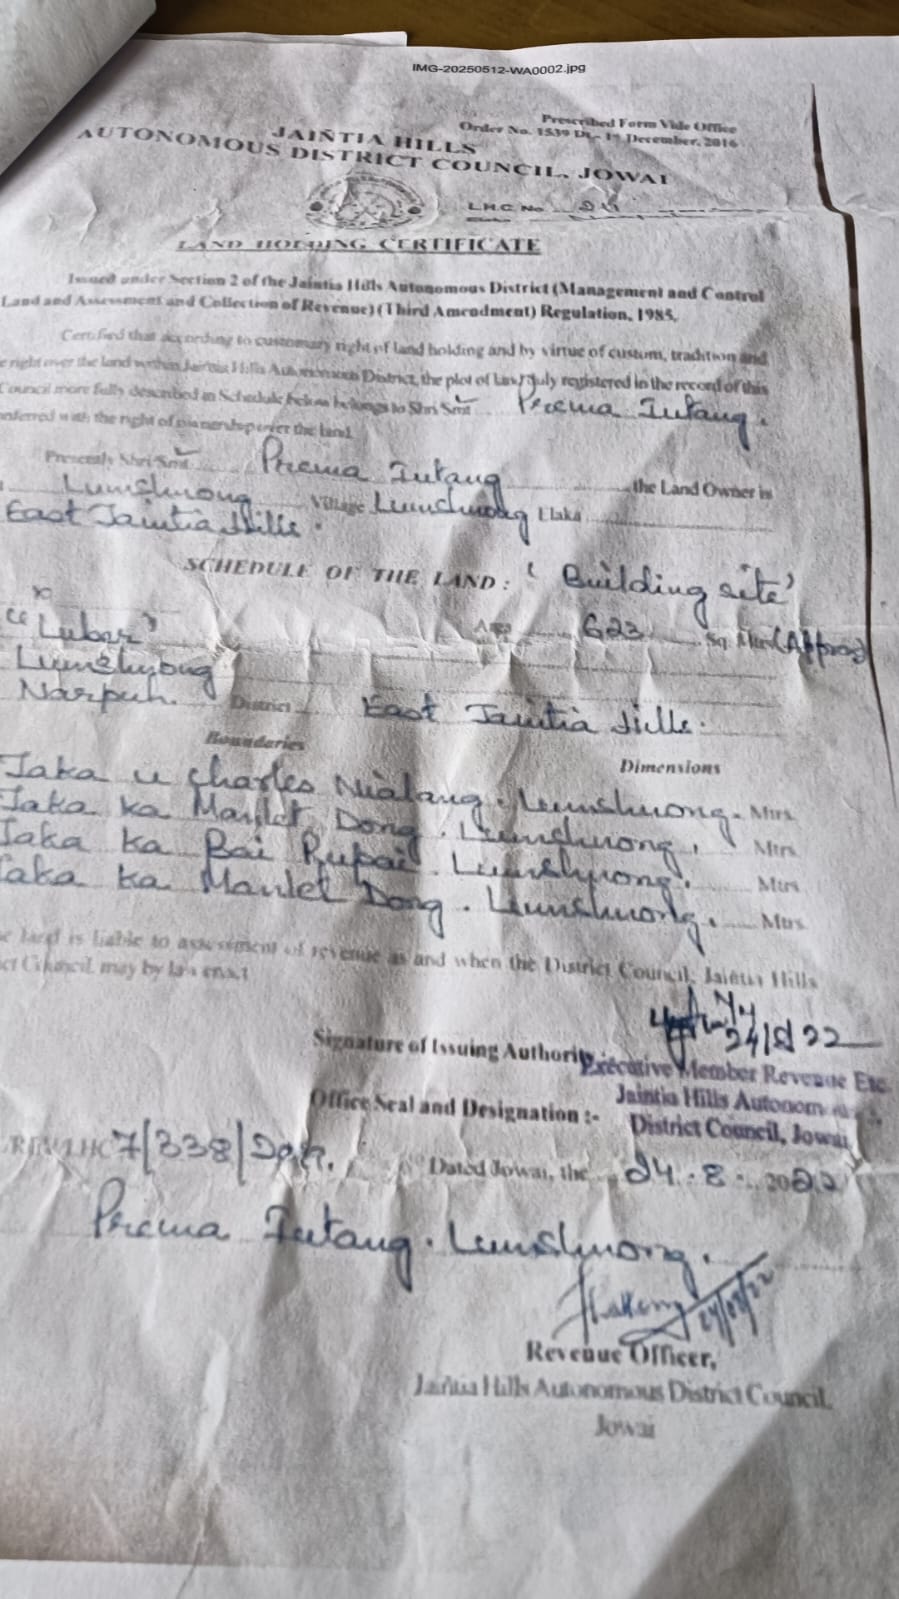 IMG-20250512-WA0002.jpg
Prescribed Form Vide Office
Order No. 1539 Dt.- 1st December, 2016
JAIÑTIA HILLS
AUTONOMOUS DISTRICT COUNCIL, JOWAI
L.H.C. No.
LAND HOLDING CERTIFICATE
Issued under Section 2 of the Jaintia Hills Autonomous District (Management and Control
Land and Assessment and Collection of Revenue) (Third Amendment) Regulation, 1985.
Certified that according to customary right of land holding and by virtue of custom, tradition and
right over the land within Jaintia Hills Autonomous District, the plot of land duly registered in the record of this
Council more fully described in Schedule below belongs to Shri Smt Prema Sutang.
with the right of ownership over the land.
Presently Shri Smt Prema Sutang the Land Owner is
Lumshnong Village Lumshnong Elaka
East Jaintia Hills.
SCHEDULE OF THE LAND : ' Building site'
Area 623 Sq. Mtrs (Approx)
Lumshnong
Narpuh. District East Jaintia Hills.
Boundaries
Dimensions
Jaka u Charles Nialang. Lumshnong. Mtrs
Jaka ka Manlet Dong. Lumshnong. Mtrs
Jaka ka Bai Rupai. Lumshnong. Mtrs
Jaka ka Manlet Dong. Lumshnong. Mtrs
land is liable to assessment of revenue as and when the District Council, Jaiñtia Hills
Council may by law enact
24/8/22
Signature of Issuing Authority:-
Executive Member Revenue Etc.
Jaintia Hills Autonom
Office Seal and Designation :-
District Council, Jowai
7/338/
Dated Jowai, the 24.8. 2022
Prema Sutang. Lumshnong.
24/08/22
Revenue Officer,
Jaiñtia Hills Autonomous District Council,
Jowai